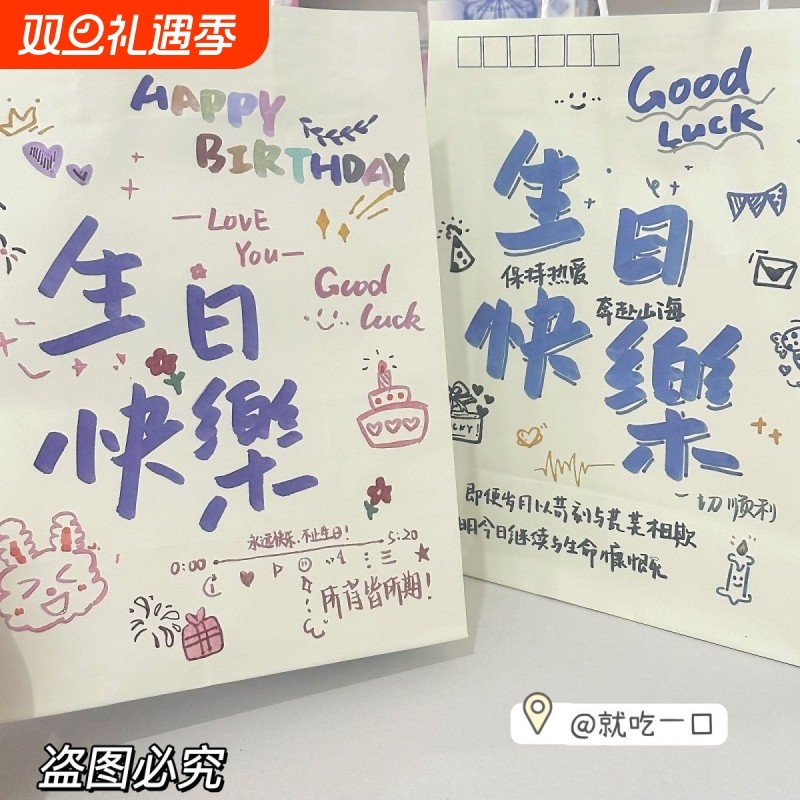 双旦礼遇季
HAPPY
BIRTHDAY
—LOVE
You—
Good
Luck
生日
快樂
永远快乐,不止生日!
0:00
5:20
所有皆所期!
Good
Luck
生日
保持热爱
奔赴山海
快樂
LUCKY!
一切顺利
即使岁月以苛刻与荒芜相欺
明今日继续与生命慷慨死
@就吃一口
盗图必究